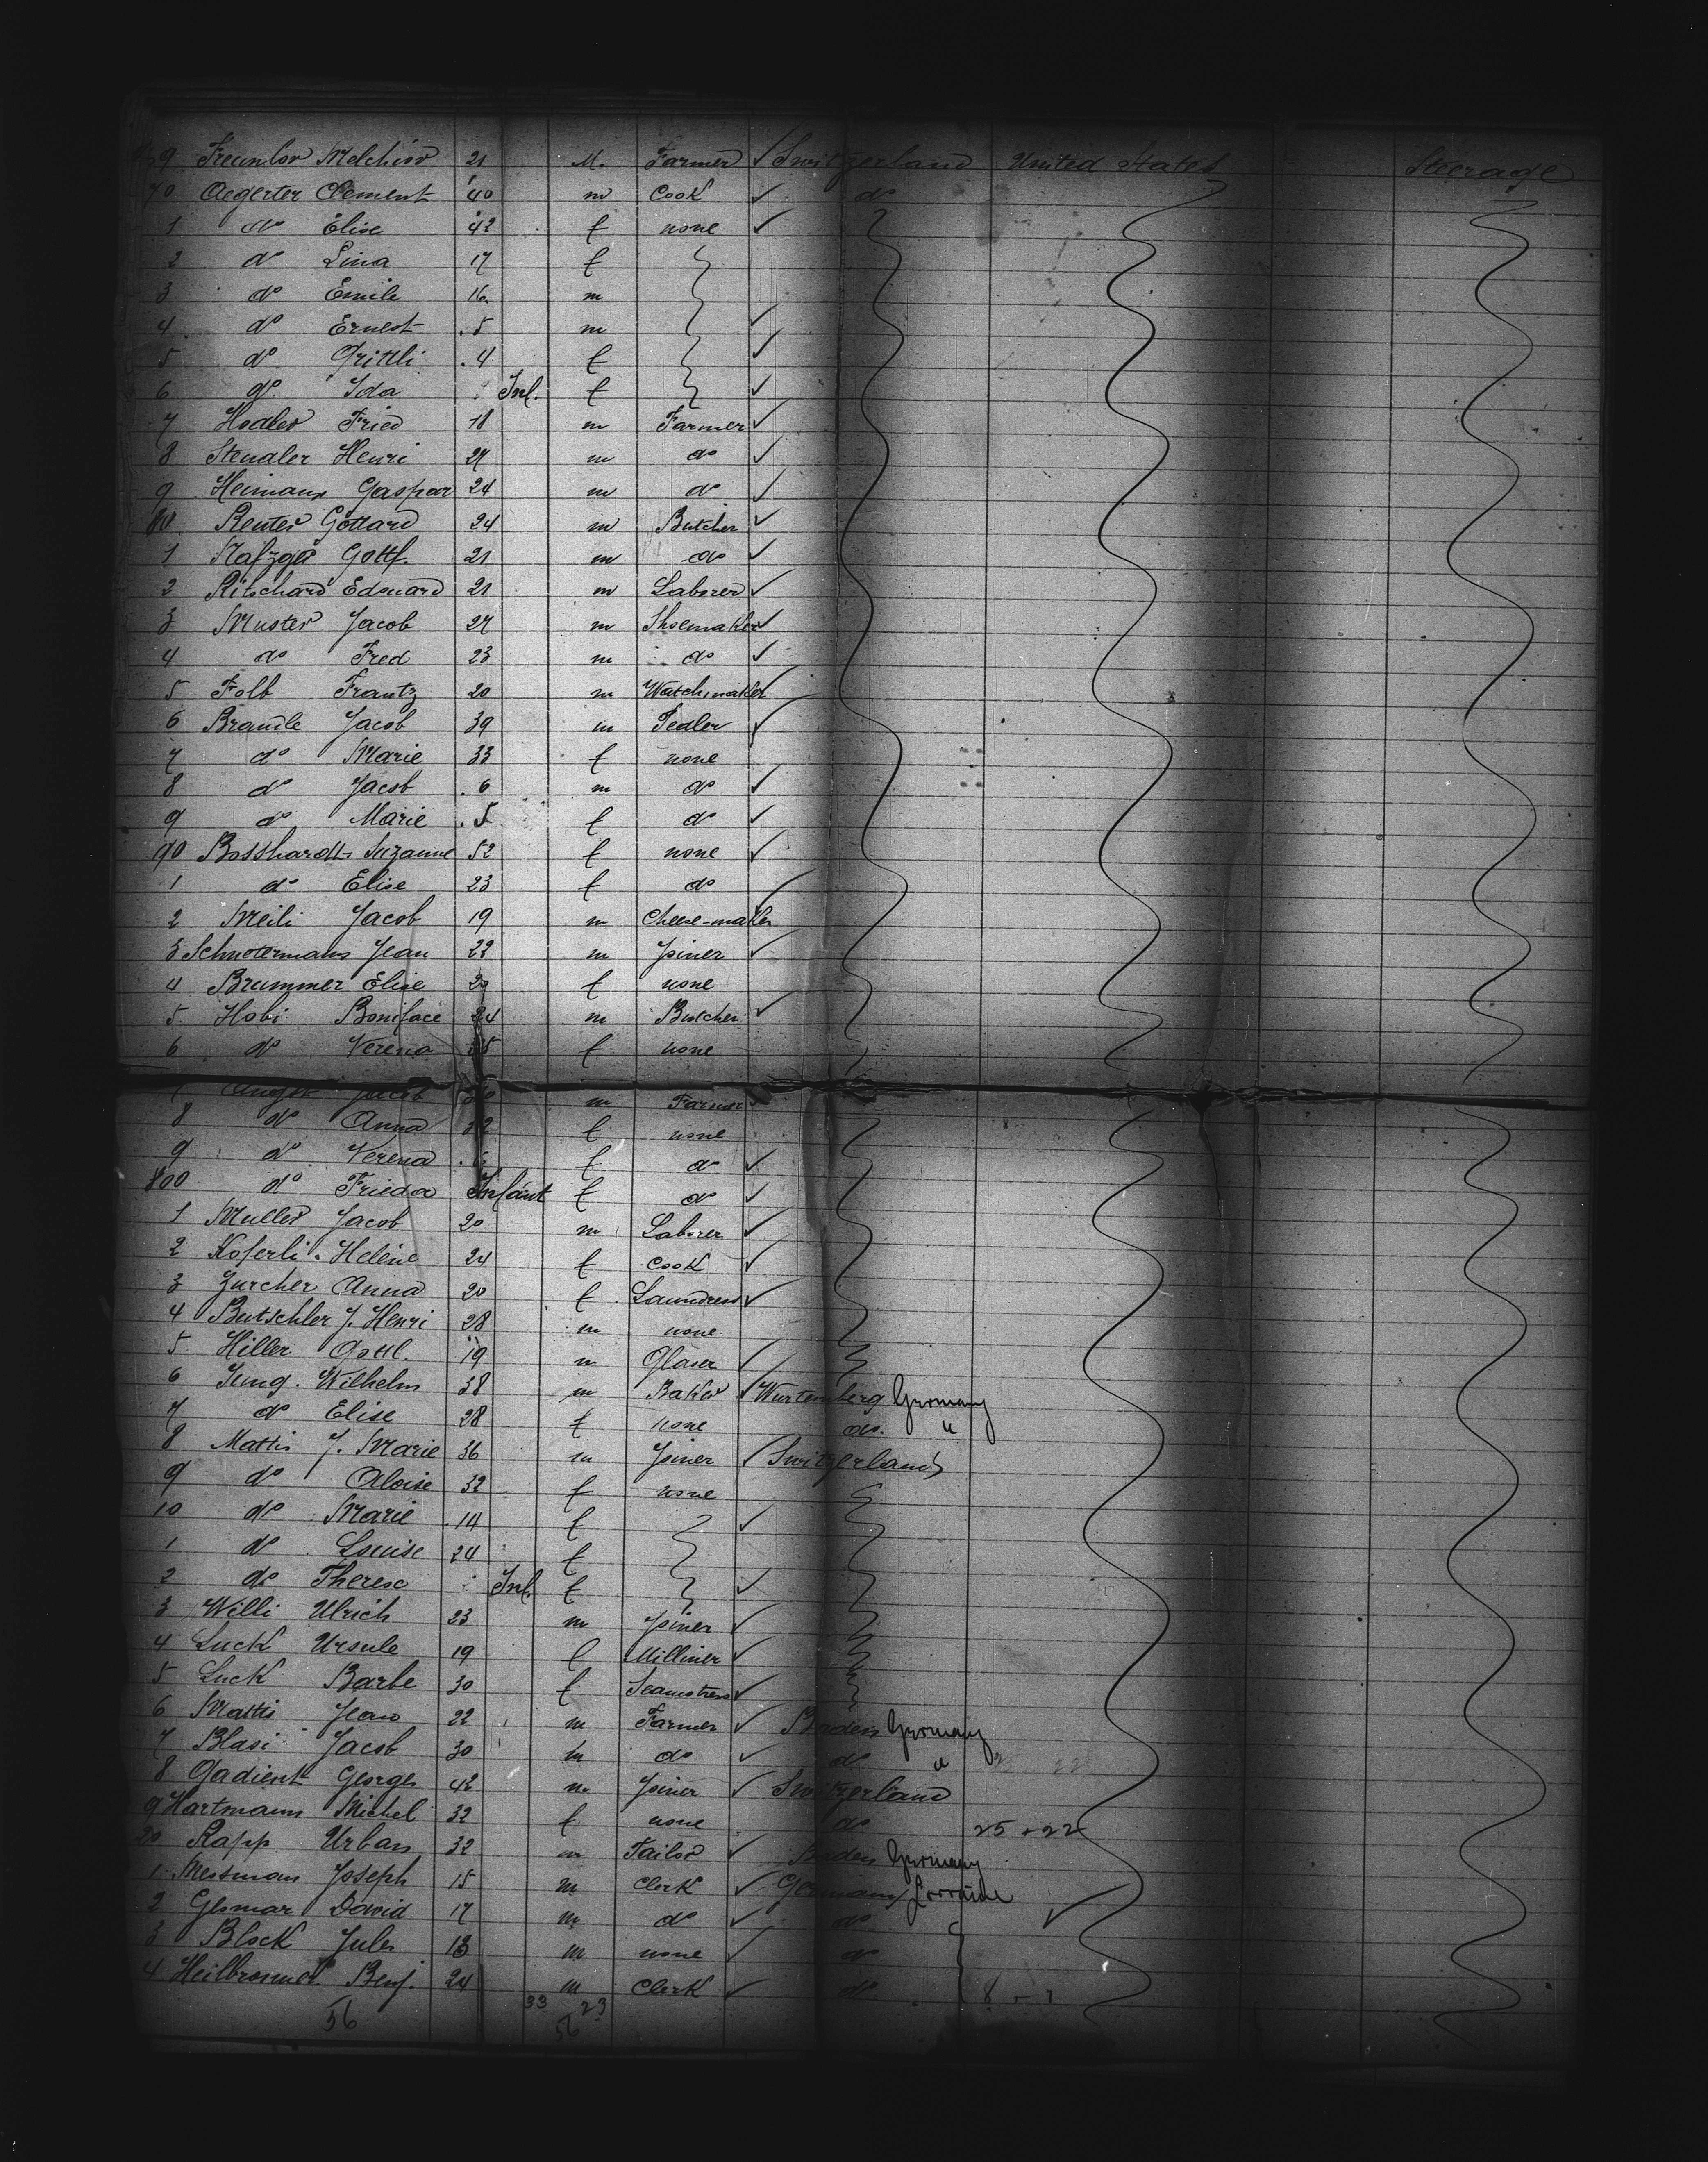 9 Melchior 21 M. Farmer ✓ Switzerland United States Steerage
70 Aegerter Clement 40 m Cook ✓ do
1 do Elise 42 f none ✓
2 do Lina 17 f
3 do Emile 16 m
4 do Ernest 5 m ✓
5 do Grittli 4 f ✓
6 do Ida Inf. f ✓
7 Hodler Fried 18 m Farmer ✓
8 Steudler Henri 27 m do ✓
9 Heimann Gaspar 24 m do ✓
80 Reuter Gottard 24 m Butcher ✓
1 Nafzger Gottf. 21 m do ✓
2 Ritschard Edouard 21 m Laborer ✓
3 Muster Jacob 27 m Shoemaker ✓
4 do Fred 23 m do ✓
5 Folb Frantz 20 m Watchmaker ✓
6 Brandle Jacob 39 m Pedler ✓
7 do Marie 33 f none
8 do Jacob 6 m do ✓
9 do Marie 5 f do ✓
90 Bosshardt Suzanne 52 f none ✓
1 do Elise 23 f do
2 Meili Jacob 19 m Cheese-maker ✓
3 Schnetermann Jean 22 m Joiner ✓
4 Brummer Elise 20 f none
5 Hobi Boniface 24 m Butcher ✓
6 do Verena f none
7 Angst Jacob m Farmer
8 do Anna 32 f none
9 do Verena f do ✓
800 do Frieda Infant f do ✓
1 Muller Jacob 20 m Laborer ✓
2 Koferli Helene 24 f Cook ✓
3 Zurcher Anna 20 f Laundress ✓
4 Butschler J. Henri 28 m none
5 Hiller Gottl. 19 m Glaser ✓
6 Jung Wilhelm 38 m Baker ✓ Wurtemberg Germany
7 do Elise 28 f none do. "
8 Mattis J. Marie 36 m Joiner ✓ Switzerland
9 do Aloise 32 f none
10 do Marie 14 f ✓
1 do Louise 24 f
2 do Therese Inf. f ✓
3 Willi Ulrich 23 m Joiner ✓
4 Luck Ursule 19 f Milliner ✓
5 Luck Barbe 30 f Seamstress ✓
6 Mattis Jean 22 m Farmer ✓ Baden Germany
7 Blasi Jacob 30 m do ✓ do "
8 Gadient Georges 42 m Joiner ✓ Switzerland
9 Hartmann Michel 32 f none do 25 + 22
20 Rapp Urban 32 m Tailor ✓ Baden Germany
1 Messman Joseph 15 m Clerk ✓ Germany Lorraine
2 Gesmar David 17 m do ✓ do ✓
3 Block Jules 18 m none ✓ do
4 Heilbronner Benj. 24 m Clerk ✓ do
56 33 23
56